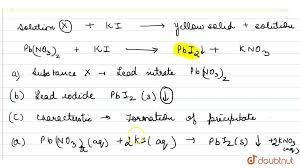 Solution (X) + KI → Yellow solid + solution
Pb(NO₃)₂ + KI → PbI₂↓ + KNO₃
a) Substance X → Lead nitrate Pb(NO₃)₂
(b) Lead iodide PbI₂ (s) (↓)
(c) Characteristic → Formation of precipitate
(d) Pb(NO₃)₂(aq) + 2KI(aq) → PbI₂(s) ↓ + 2KNO₃ (aq)
doubtnut